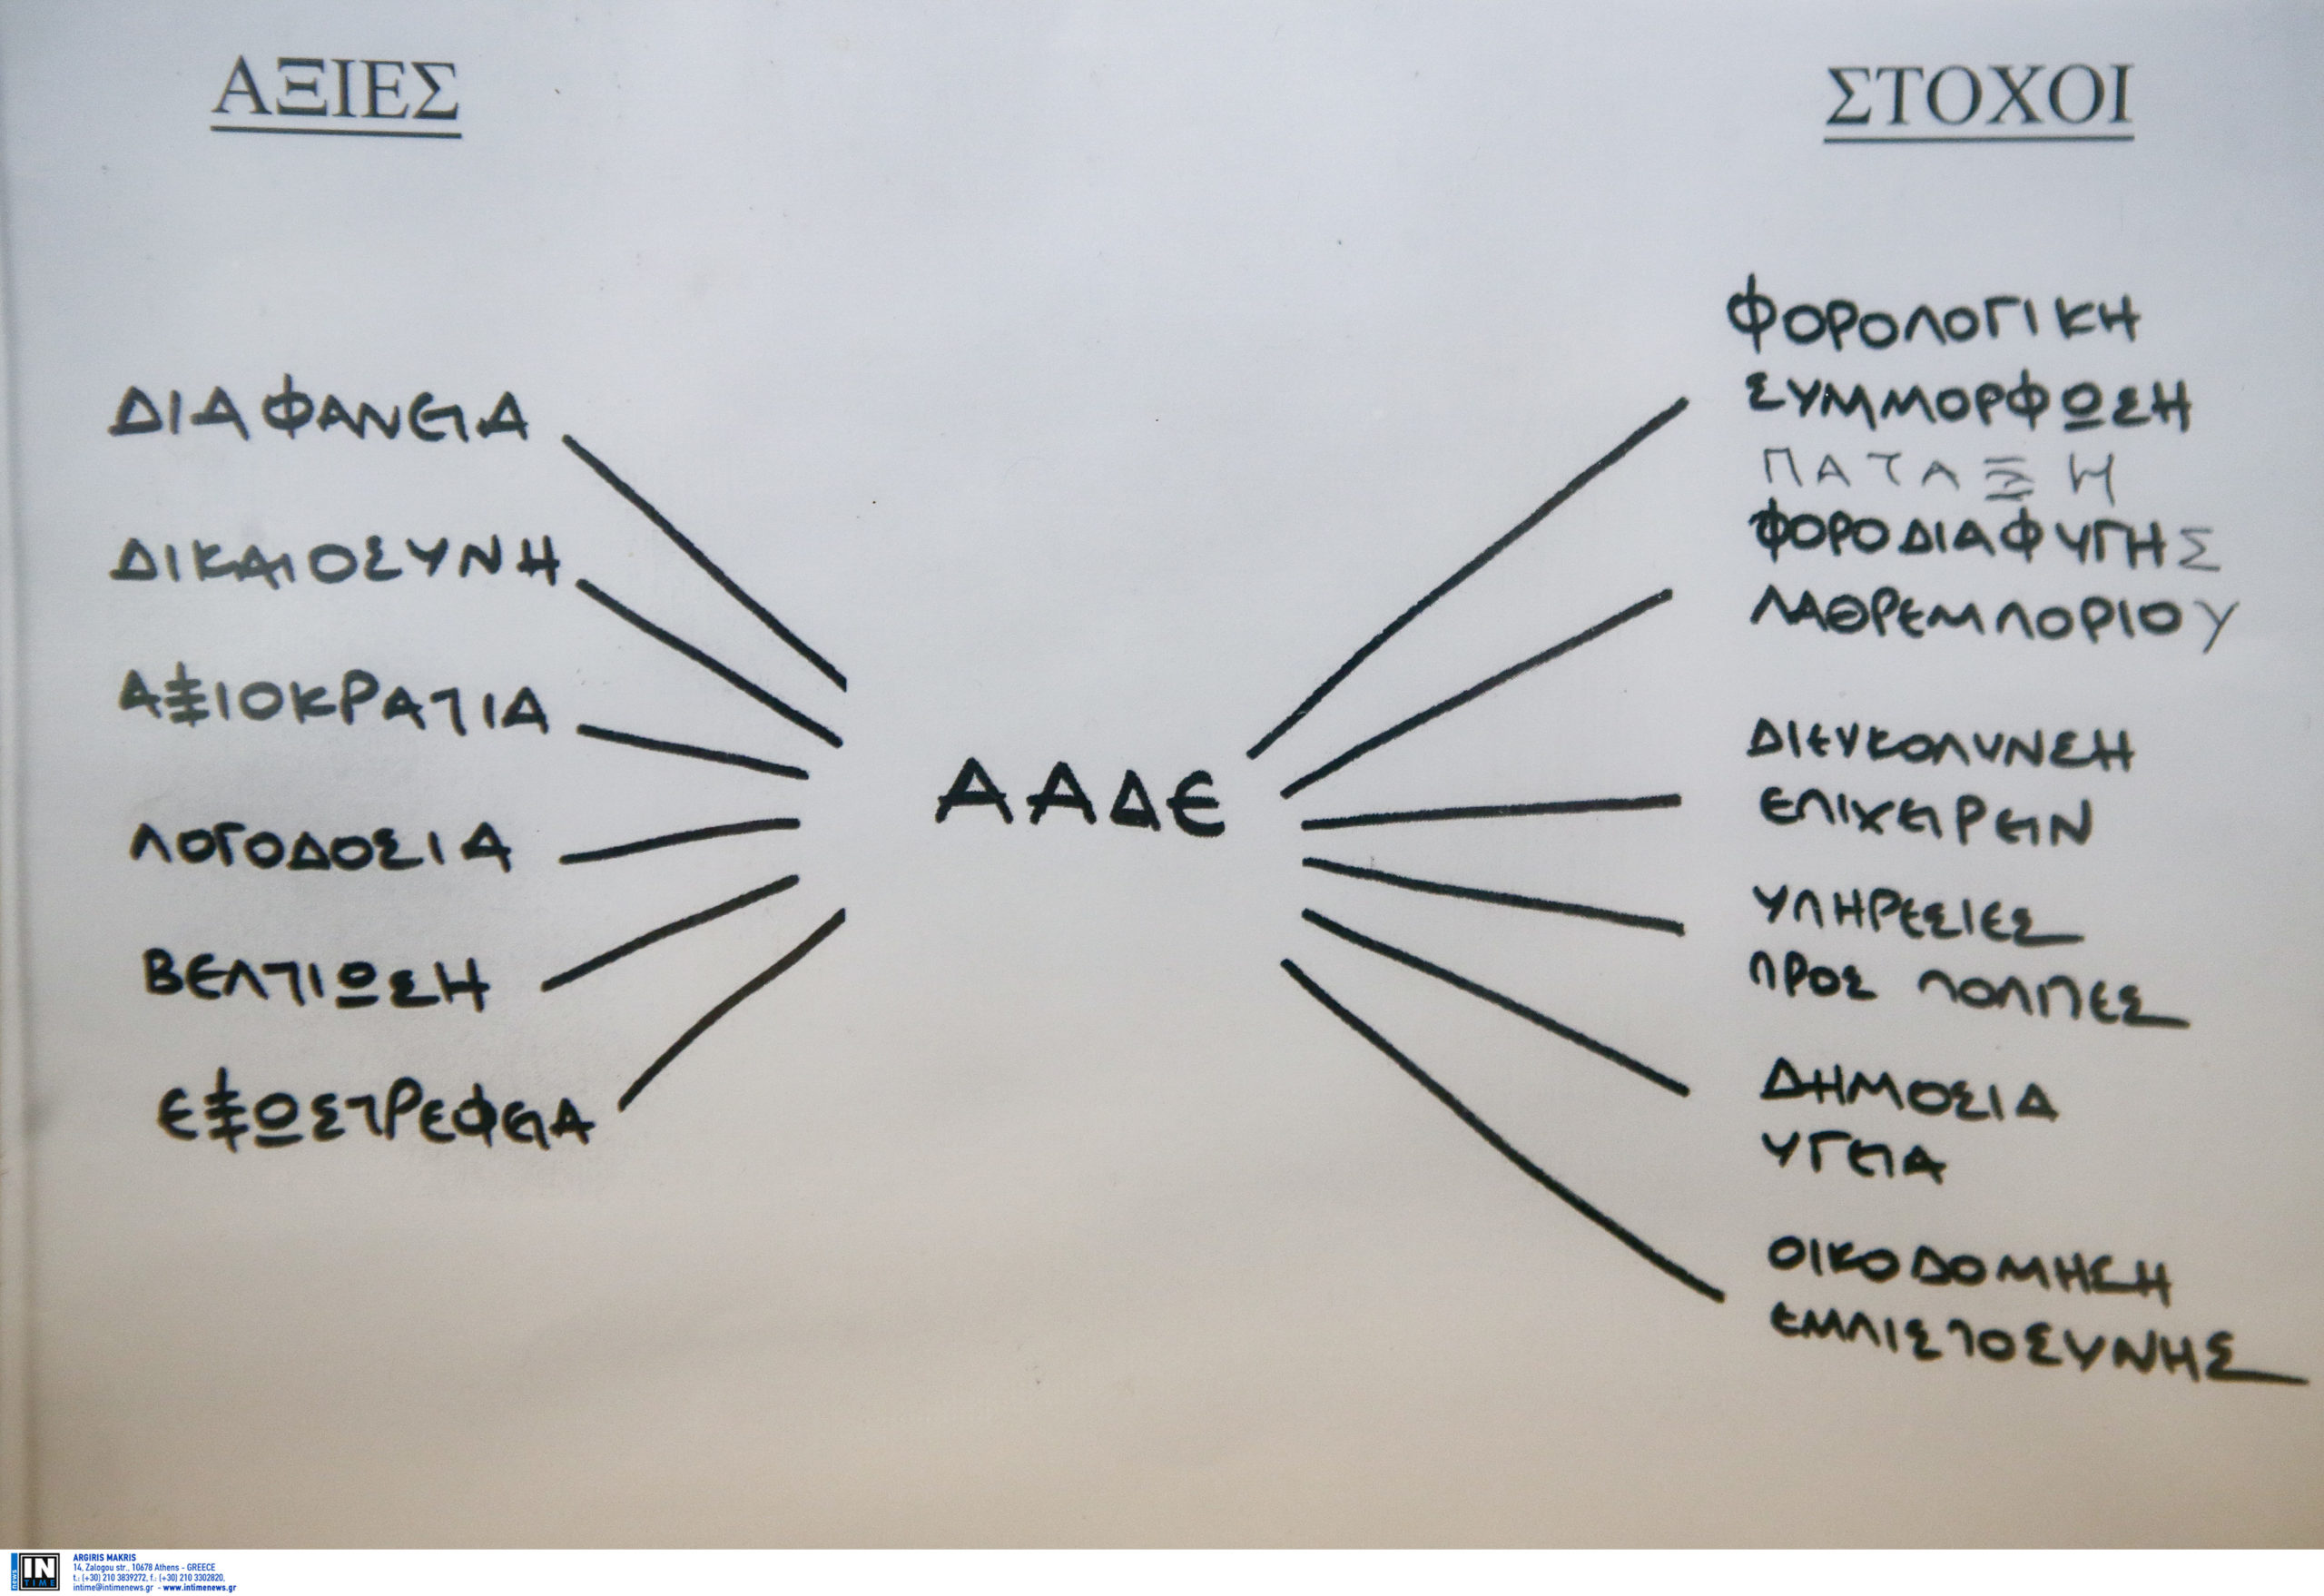 ΑΞΙΕΣ
ΔΙΑΦΑΝΕΙΑ
ΔΙΚΑΙΟΣΥΝΗ
ΑΞΙΟΚΡΑΤΙΑ
ΛΟΓΟΔΟΣΙΑ
ΒΕΛΤΙΩΣΗ
ΕΞΩΣΤΡΕΦΕΙΑ
ΑΑΔΕ
ΣΤΟΧΟΙ
ΦΟΡΟΛΟΓΙΚΗ
ΣΥΜΜΟΡΦΩΣΗ
ΠΑΤΑΞΗ
ΦΟΡΟΔΙΑΦΥΓΗΣ
ΛΑΘΡΕΜΠΟΡΙΟΥ
ΔΙΕΥΚΟΛΥΝΣΗ
ΕΠΙΧΕΙΡΕΙΝ
ΥΠΗΡΕΣΙΕΣ
ΠΡΟΣ ΠΟΛΙΤΕΣ
ΔΗΜΟΣΙΑ
ΥΓΕΙΑ
ΟΙΚΟΔΟΜΗΣΗ
ΕΜΠΙΣΤΟΣΥΝΗΣ
news IN TIME
ARGIRIS MAKRIS
14, Zalogou str., 10678 Athens - GREECE
t.: (+30) 210 3839272, f.: (+30) 210 3302820,
intime@intimenews.gr - www.intimenews.gr